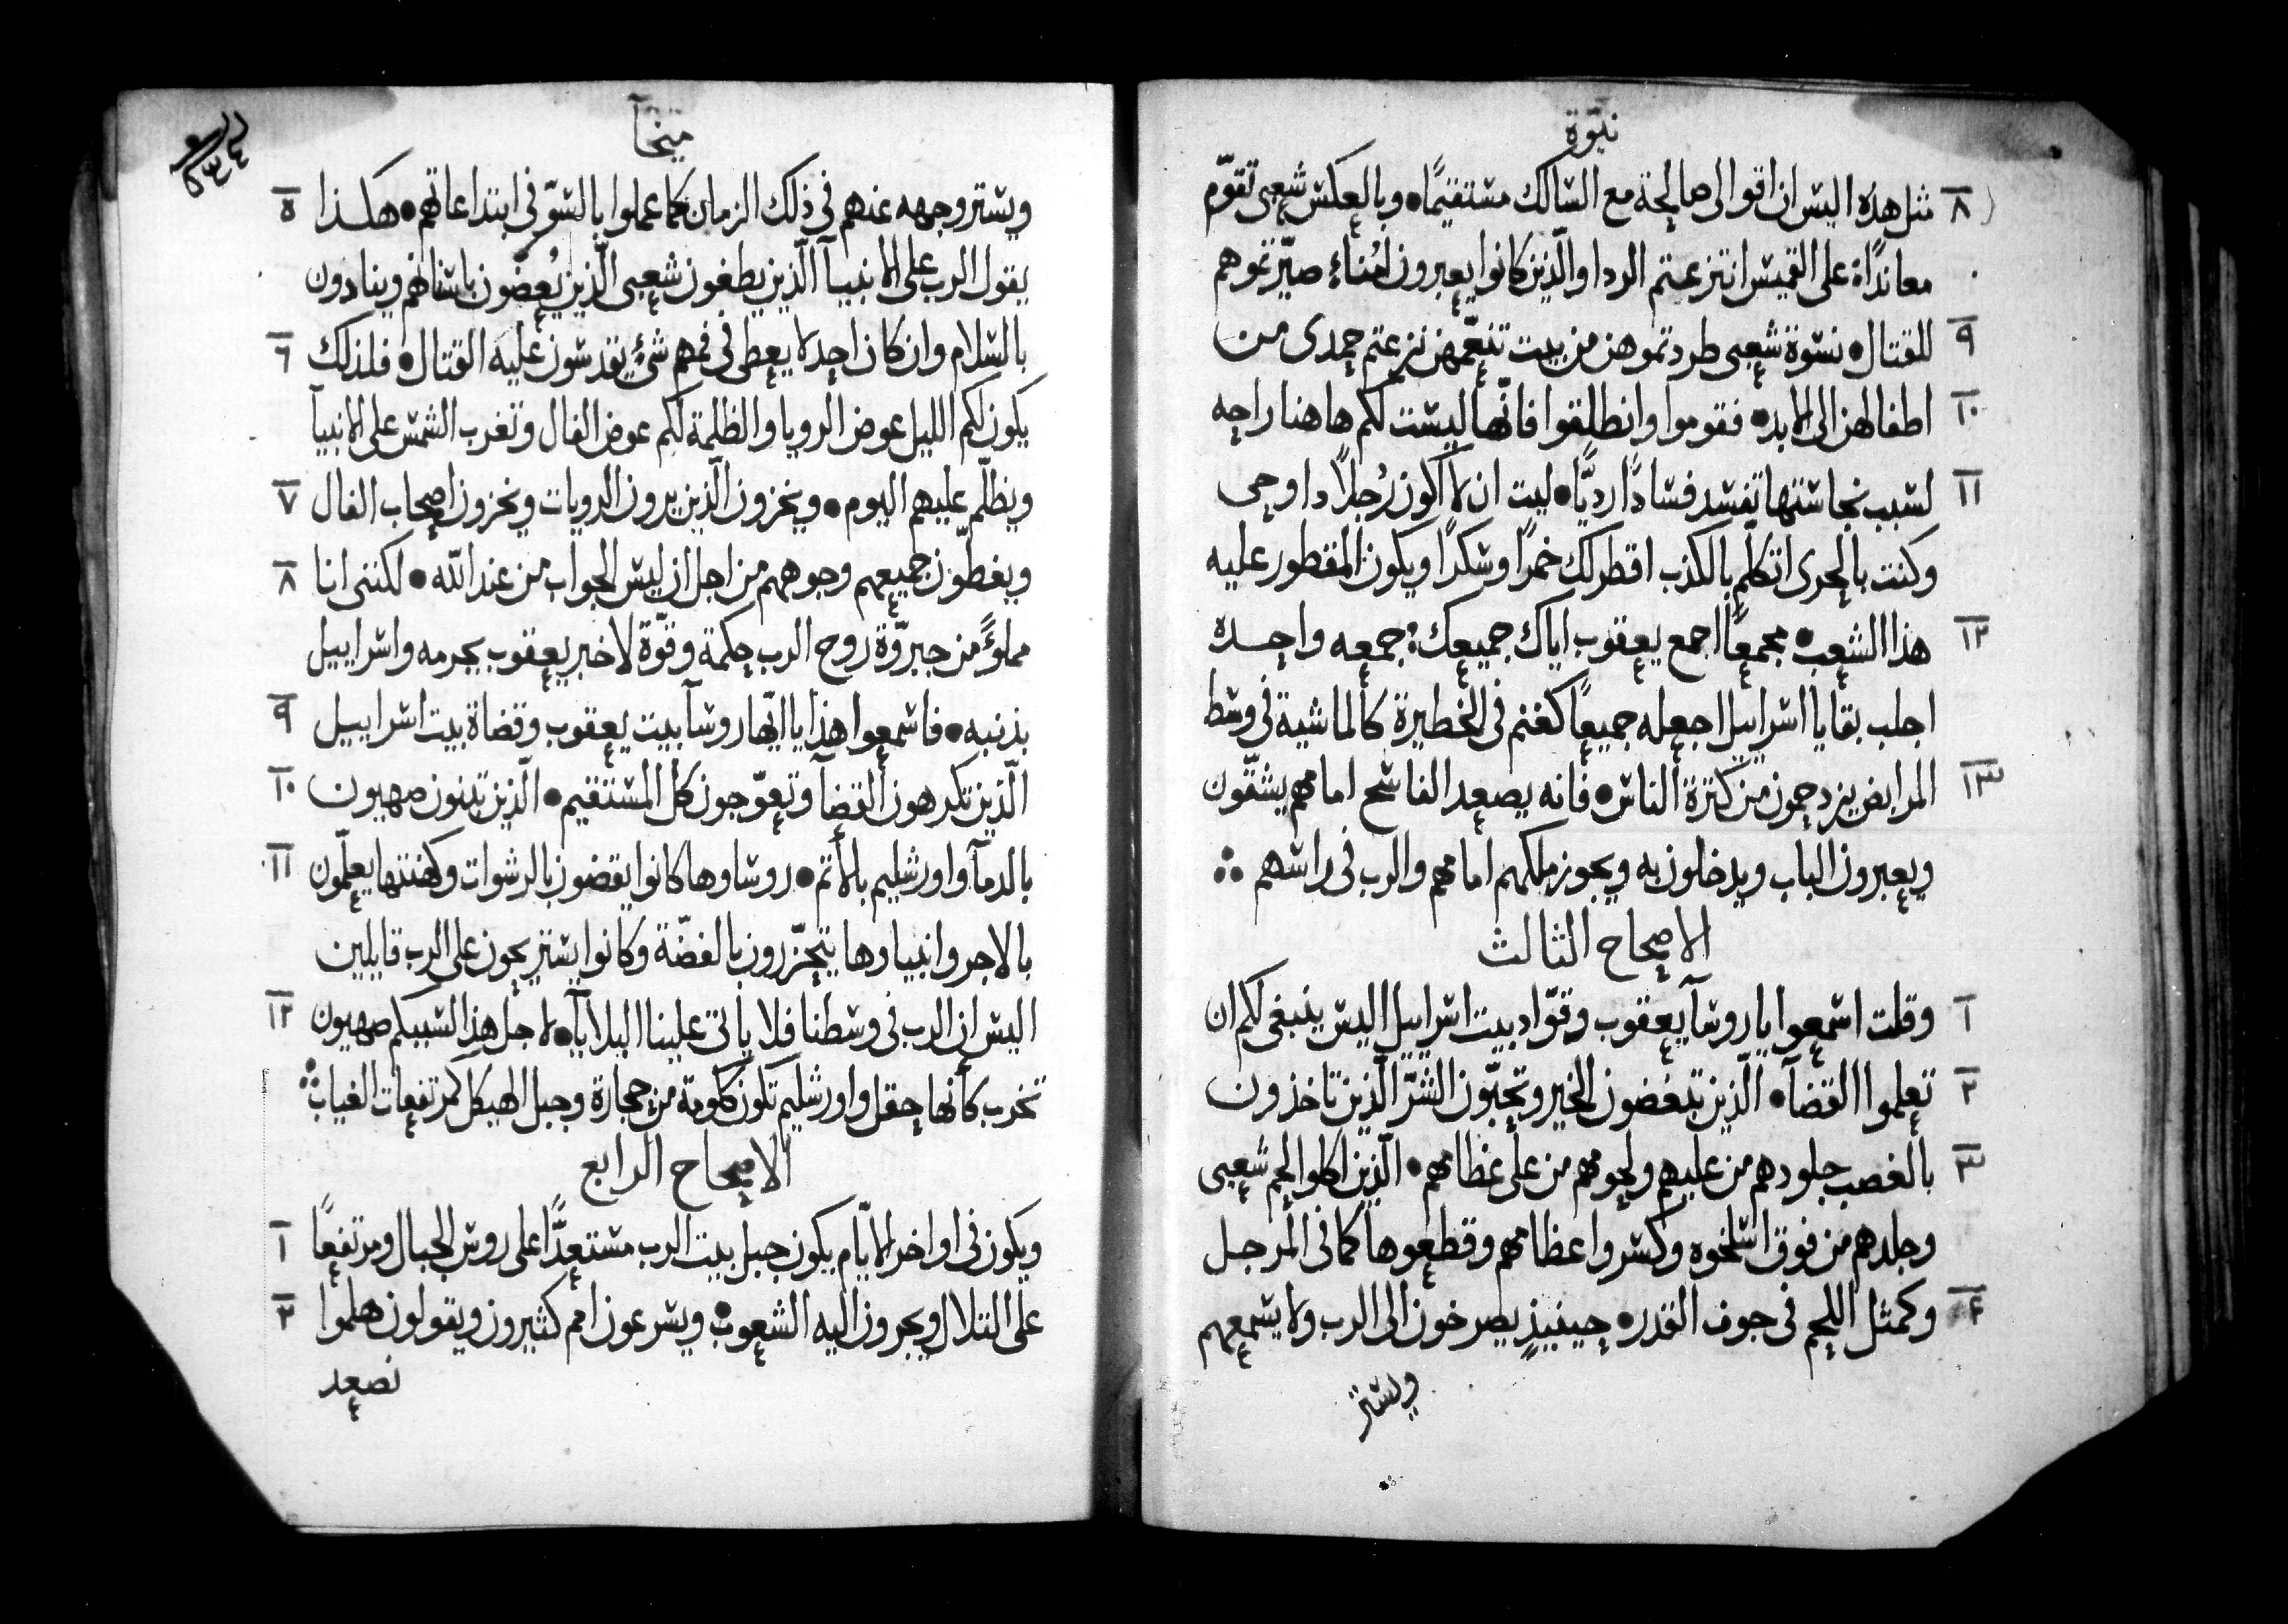 نبوّة
٨ مثل هذه اليس ان اقوالى صالحة مع السالك مستقيمًا • وبالعكس شعبى تقوّم
معاندًاة على القميس انتزعتم الردا والّذين كانوا يعبرون امُناءٍ صيّرتموهم
٩ للقتال • نسوة شعبى طردتموهن من بيت تنعّمهن نزعتم حمدى من
١٠ اطفالهن الى الابد • فقوموا وانطلقوا فانّها ليست لكم هاهنا راحه
١١ لسبب نجاستها تفسد فسادًا رديًّا • ليت ان لا اكون رُجلاً ذا وحى
وكنت بالحرى اتكلّم بالكذب اقطر لك خمرًا وسكرًا ويكون المقطور عليه
١٢ هذا الشعب • مجمعًا اجمع يعقوب اياك جميعك جمعه واحده
اجلب بقايا اسراييل اجعله جميعًا كغنم فى الحظيرة كالماشية فى وسط
١٣ المرابض يزدحمون من كثرة الناس • فانه يصعد الفاسح امامهم يشقّون
ويعبرون الباب ويدخلون به ويجوز ملكهم امامهم والرب فى راسهم
الاصحاح الثالث
١ وقلت اسمعوا يا روسآ يعقوب وقوّاد بيت اسراييل اليس ينبغى لكم ان
٢ تعلموا القضآ • الّذين تبغضون الخير وتحبّون الشرّ الّذين تاخذون
٣ بالغصب جلودهم من عليهم ولحومهم من على عظامهم • الّذين اكلوا لحم شعبى
وجلدهم من فوق اسلخوه وكسروا عظامهم وقطعوها كما فى المرجل
٤ وكمثل اللحم فى جوف القدر • حينيذٍ يصرخون الى الرب ولا يسمعهم
ويستر
ميخآ
ويستر وجهه عنهم فى ذلك الزمان كما عملوا بالسوّ فى ابتداعاتهم • هكذا ٥
يقول الرب على الانبيآ الّذين يطغون شعبى الّذين يُعضّون باسنانهم وينادون
بالسلام وان كان احد لا يعطى فى فمهم شىٌ يقدسون عليه القتال • فلذلك ٦
يكون لكم الليل عوض الرويا والظلمة لكم عوض الفال وتغرب الشمس على الانبيآ
ويظلّم عليهم اليوم • ويخزون الّذين يرون الرويات ويخزون اصحاب الفال ٧
ويغطّون جميعهم وجوههم من اجل ان ليس الجواب من عند الله • لكننى انا ٨
مملوءً من جبروّة روح الرب حكمة وقوّة لاخبر يعقوب بجرمه واسراييل
بذنبه • فاسمعوا هذا يا ايّها روسآ بيت يعقوب وقضاة بيت اسراييل ٩
الّذين تكرهون القضآ وتعوّجون كل المستقيم • الّذين تبنون صهيون ١٠
بالدمآ واورشليم بالأثم • روساوها كانوا يقضون بالرشوات وكهنتها يعلّمون ١١
بالاجر وانبياوها يتحزّرون بالفضّة وكانوا يستريحون على الرب قايلين
اليس ان الرب فى وسطنا فلا ياتى علينا البلايآ • لاجل هذا السببكم صهيون ١٢
تخرب كأنها حقل واورشليم تكون كاومة من حجارة وجبل الهيكل كمرتفعات الغياب
الاصحاح الرابع
ويكون فى اواخر الايّام يكون جبل بيت الرب مستعدًّا على روس الجبال ومرتفعًا ١
على التلال ويجرون اليه الشعوب • ويسرعون امم كثيرون ويقولون هلموا ٢
نصعد